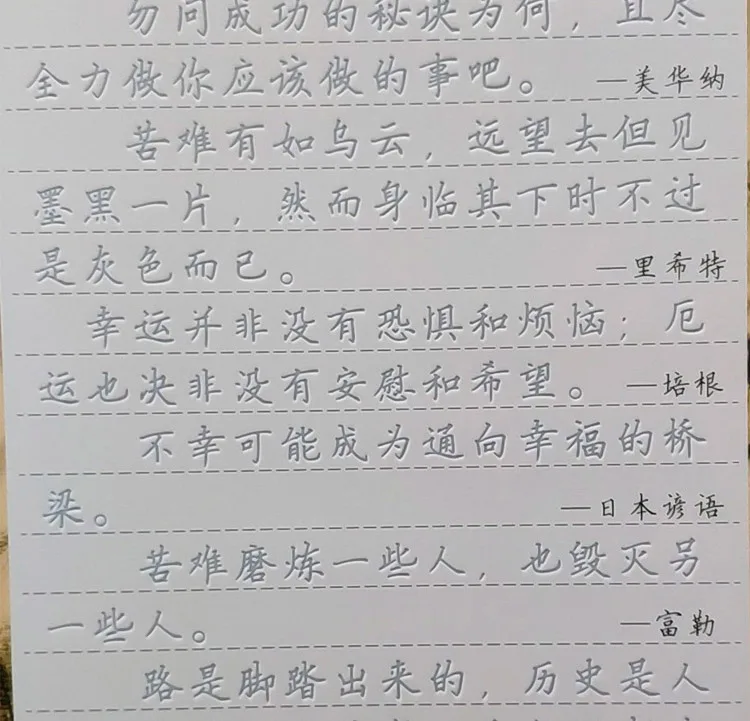 勿问成功的秘诀为何，且尽
全力做你应该做的事吧。 —美华纳
苦难有如乌云，远望去但见
墨黑一片，然而身临其下时不过
是灰色而已。 —里希特
幸运并非没有恐惧和烦恼；厄
运也决非没有安慰和希望。 —培根
不幸可能成为通向幸福的桥
梁。 —日本谚语
苦难磨炼一些人，也毁灭另
一些人。 —富勒
路是脚踏出来的，历史是人